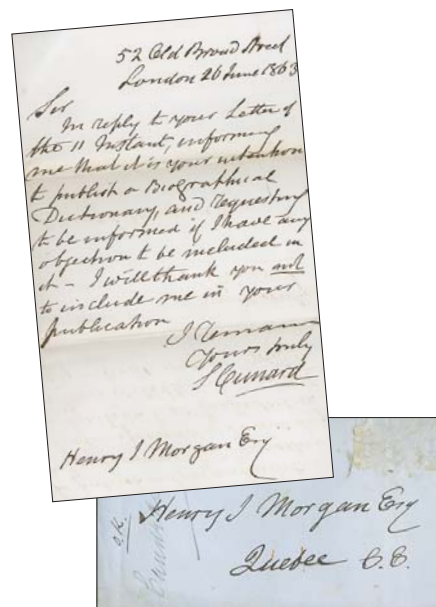 52 Old Broad Street
London 26 June 1863
Sir
In reply to your Letter of
the 11 Instant, informing
me that it is your intention
to publish a Biographical
Dictionary, and requesting
to be informed if I have any
objection to be included in
it - I will thank you not
to include me in your
publication
I remain
Yours truly
S Cunard
Henry J Morgan Esq
Henry J Morgan Esq
Quebec